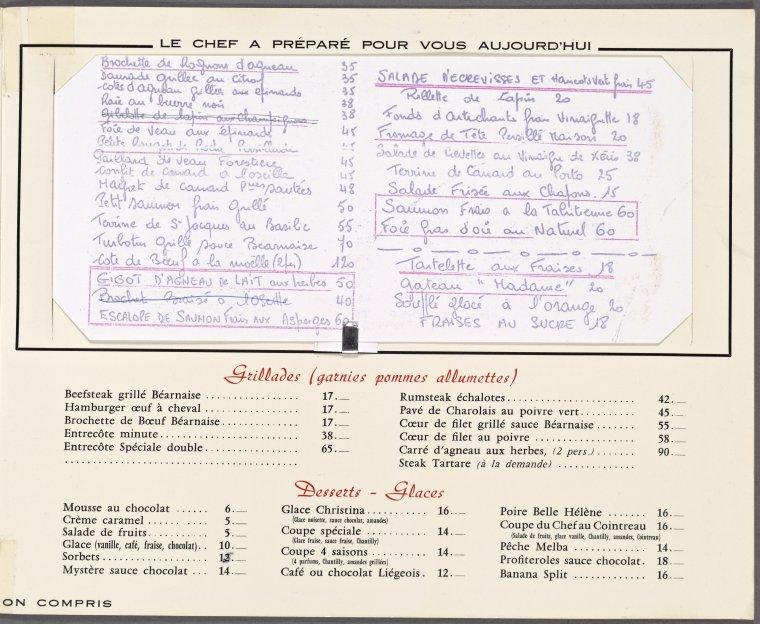 LE CHEF A PRÉPARÉ POUR VOUS AUJOURD'HUI
Brochette de Rognons d'agneau 35
Daurade grillée au citron 35
Cotes d'agneau grillées aux épinards 35
Raie au beurre noir 38
Gibelotte de lapin aux Champignons 38
Foie de Veau aux épinards 45
Petite 45
Paillard de Veau Forestière 45
Confit de Canard a l'oseille 45
Magret de Canard Pmes sautées 48
Petit saumon frais Grillé 50
Terrine de St Jacques au Basilic 55
Turbotin Grillé sauce Bearnaise 70
Cote de Bœuf a la moelle (2p) 120
GIGOT D'AGNEAU DE LAIT aux herbes 50
Brochet Braisé a l'oseille 40
ESCALOPE DE SAUMON Frais aux Asperges 60
SALADE D'ECREVISSES ET Haricots Vert frais 45
Rillette de Lapin 20
Fonds d'Artichauts frais Vinaigrette 18
Fromage de Tête Persillé Maison 20
Salade de au Vinaigre de Xérès 38
Terrine de Canard au Porto 25
Salade Frisée aux Chapons. 15
Saumon Frais a la Tahitienne 60
Foie gras d'oie au Naturel 60
Tartelette aux Fraises. 18
Gateau "Madame" 20
Soufflé glacé à l'orange 20
FRAISES AU SUCRE 18
Grillades (garnies pommes allumettes)
Beefsteak grillé Béarnaise ............ 17.—
Hamburger œuf à cheval ............ 17.—
Brochette de Bœuf Béarnaise ........ 17.—
Entrecôte minute ............ 38.—
Entrecôte Spéciale double ............ 65.—
Rumsteak échalotes ............ 42.—
Pavé de Charolais au poivre vert ........ 45.—
Cœur de filet grillé sauce Béarnaise ..... 55.—
Cœur de filet au poivre ............ 58.—
Carré d'agneau aux herbes, (2 pers.) ..... 90.—
Steak Tartare (à la demande) ............
Desserts - Glaces
Mousse au chocolat ...... 6.—
Crème caramel ............ 5.—
Salade de fruits ............ 5.—
Glace (vanille, café, fraise, chocolat) .. 10.—
Sorbets ............
Mystère sauce chocolat ... 14.—
Glace Christina ............ 16.—
(Glace noisette, sauce chocolat, amandes)
Coupe spéciale ............ 14.—
(Glace fraise, sauce fraise, Chantilly)
Coupe 4 saisons ............ 14.—
(4 parfums, Chantilly, amandes grillées)
Café ou chocolat Liégeois . 12.—
Poire Belle Hélène ....... 16.—
Coupe du Chef au Cointreau 16.—
(Salade de fruits, glace vanille, Chantilly, amandes, Cointreau)
Pêche Melba ............ 14.—
Profiteroles sauce chocolat. 18.—
Banana Split ............ 16.—
ON COMPRIS